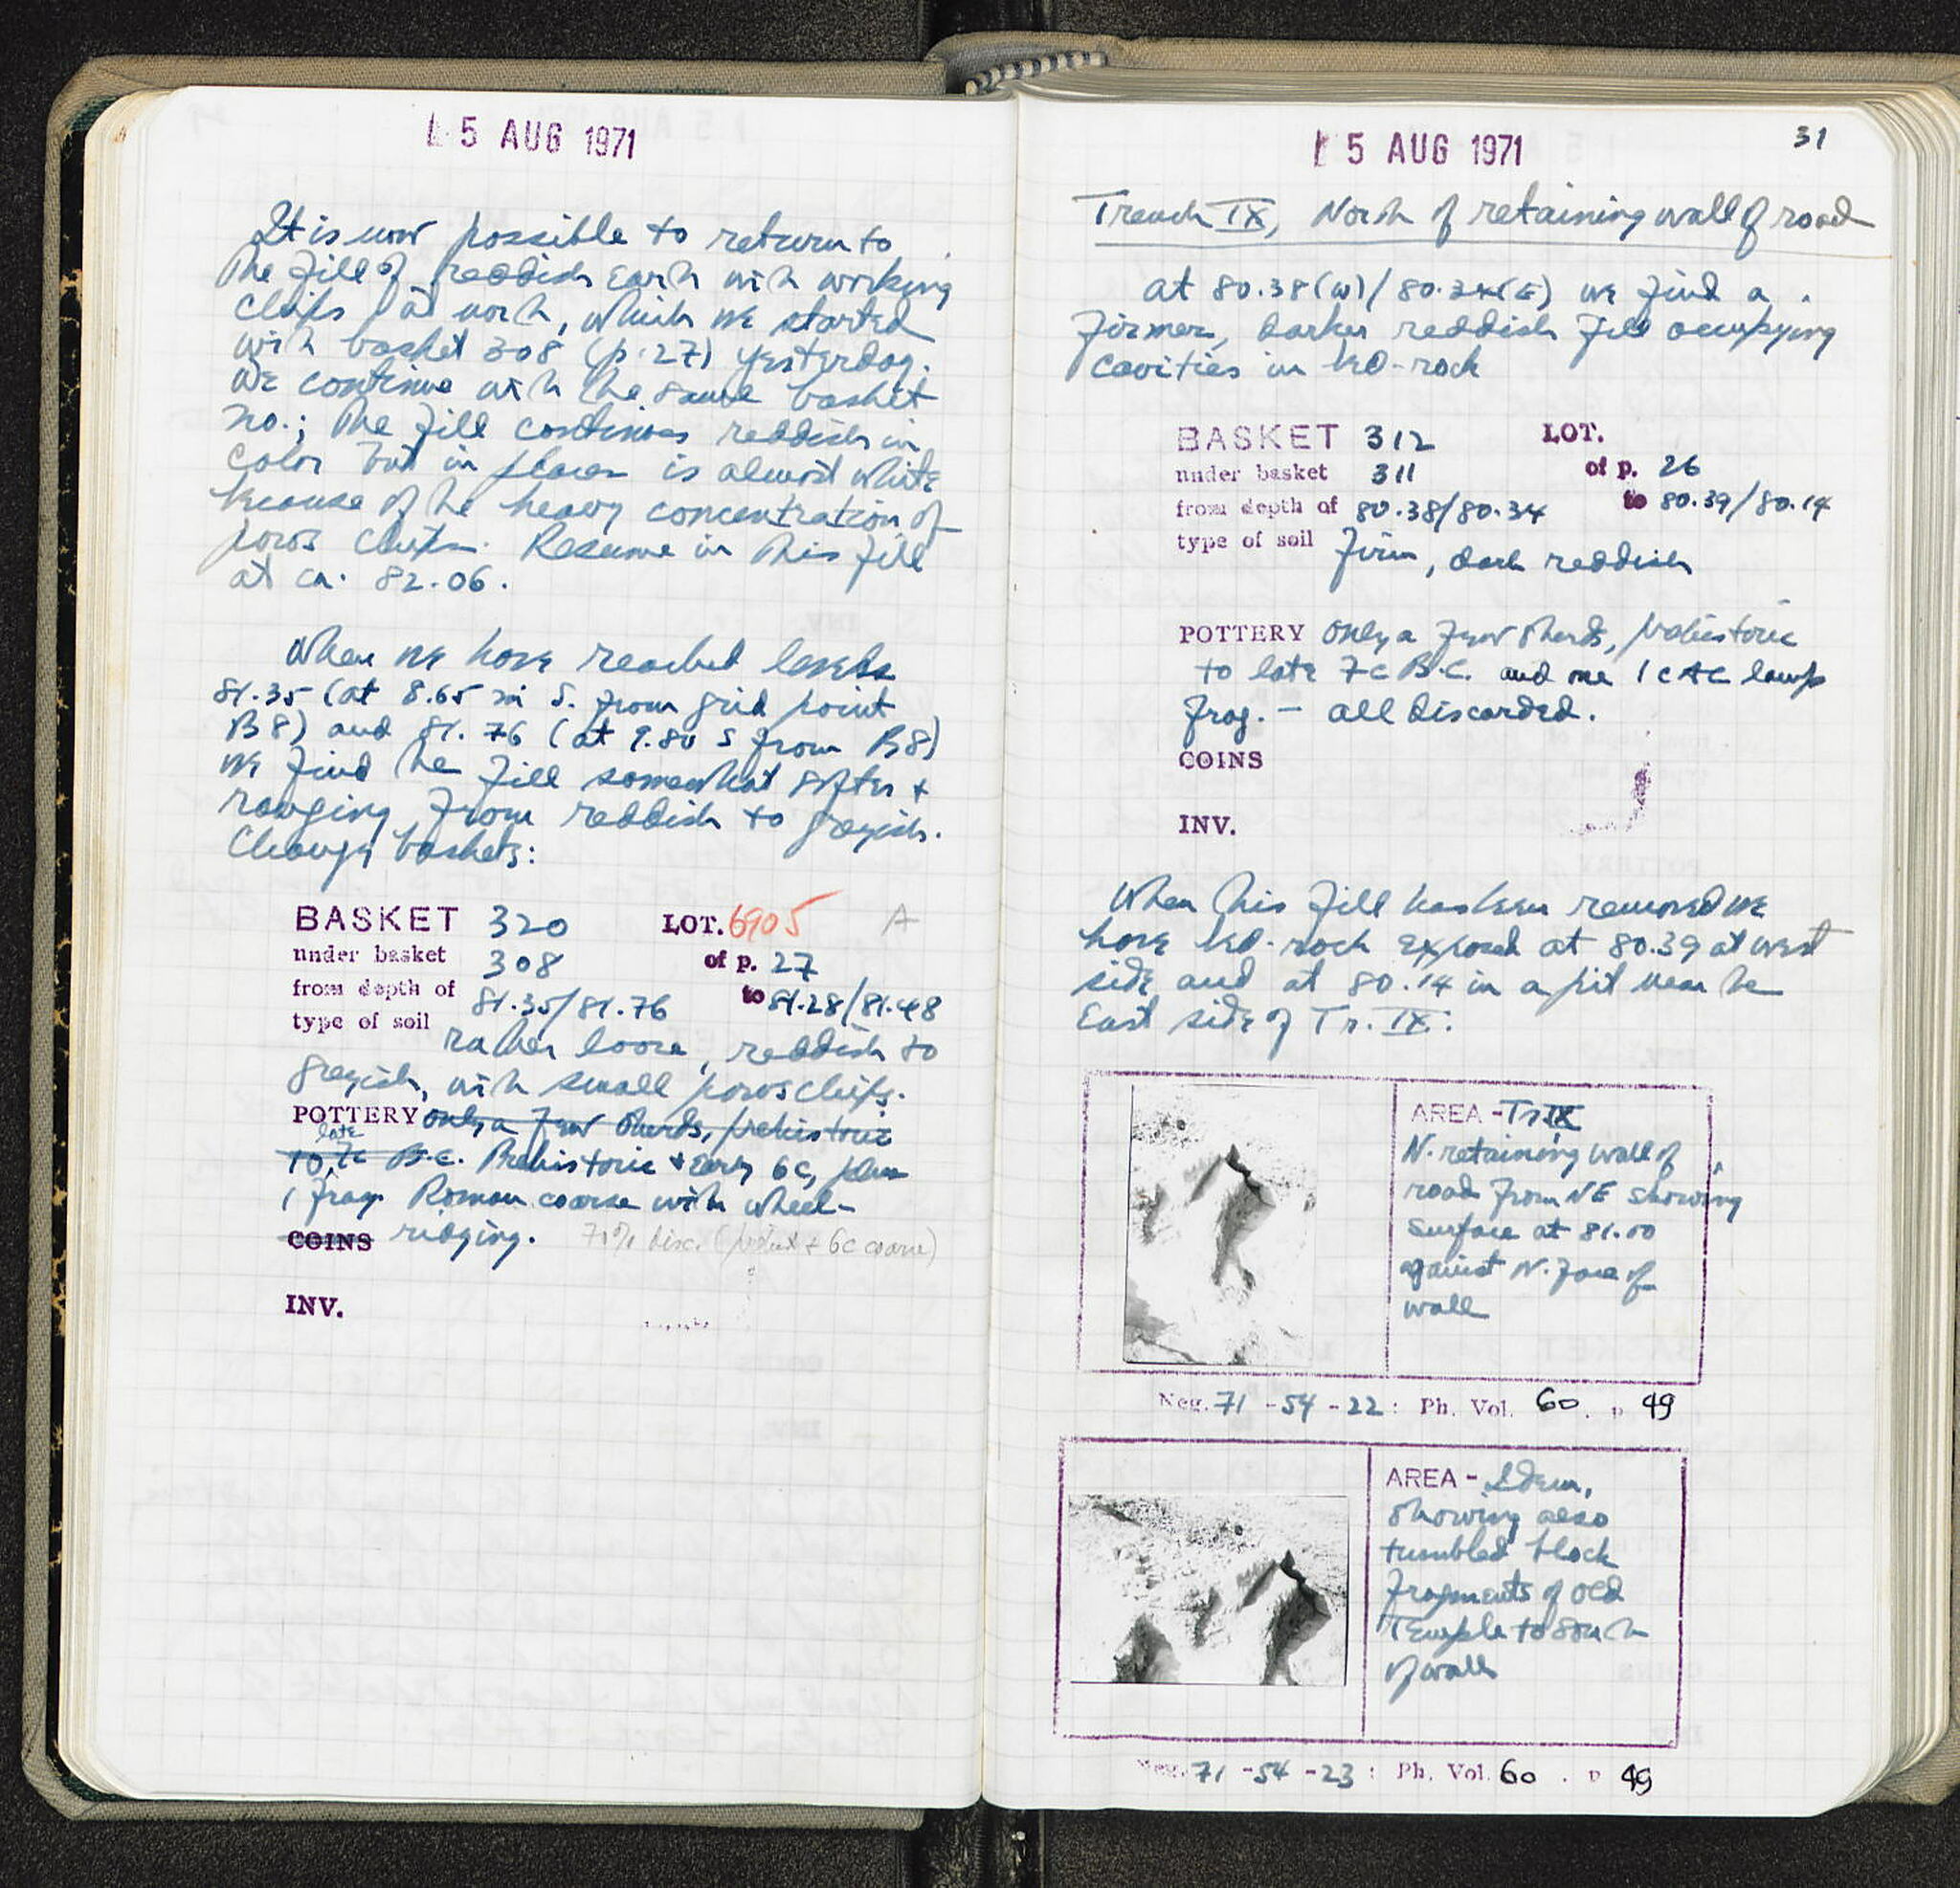 5 AUG 1971
It is now possible to return to
the fill of reddish earth with working
chips at north, which we started
with basket 308 (p. 27) yesterday.
We continue with the same basket
no.; the fill continues reddish in
color but in places is almost white
because of the heavy concentration of
poros chips. Resume in this fill
at ca. 82.06.
When we have reached levels
81.35 (at 8.65 m S. from grid point
B8) and 81.76 (at 9.80 S from B8)
we find the fill somewhat softer +
ranging from reddish to grayish.
Change baskets:
BASKET 320 LOT. 6905 A
under basket 308 of p. 27
from depth of 81.35/81.76 to 81.28/81.48
type of soil rather loose, reddish to
grayish, with small poros chips.
POTTERY only a few sherds, prehistoric
late
to 7c B.C. Prehistoric + Early 6c, plus
1 frag. Roman coarse with wheel-
COINS ridging. disc. ( + 6c coarse)
INV.
5 AUG 1971
31
Trench IX, North of retaining wall of road
at 80.38(W)/80.34(E) we find a
firmer, darker reddish fill occupying
cavities in bed-rock
BASKET 312 LOT.
under basket 311 of p. 26
from depth of 80.38/80.34 to 80.39/80.14
type of soil Firm, dark reddish
POTTERY only a few sherds, prehistoric
to late 7c B.C. and one 1c AC lamp
frag. - all discarded.
COINS
INV.
When this fill has been removed we
have bed-rock exposed at 80.39 at west
side and at 80.14 in a pit near the
East side of Tr. IX:
AREA - Tr IX
N. retaining wall of
road from NE showing
surface at 81.00
against N. face of
wall
Neg. 71-54-22: Ph. Vol. 60. p 49
AREA - Idem,
showing also
tumbled block
fragments of Old
Temple to South
of wall
Neg. 71-54-23: Ph. Vol. 60. p 49